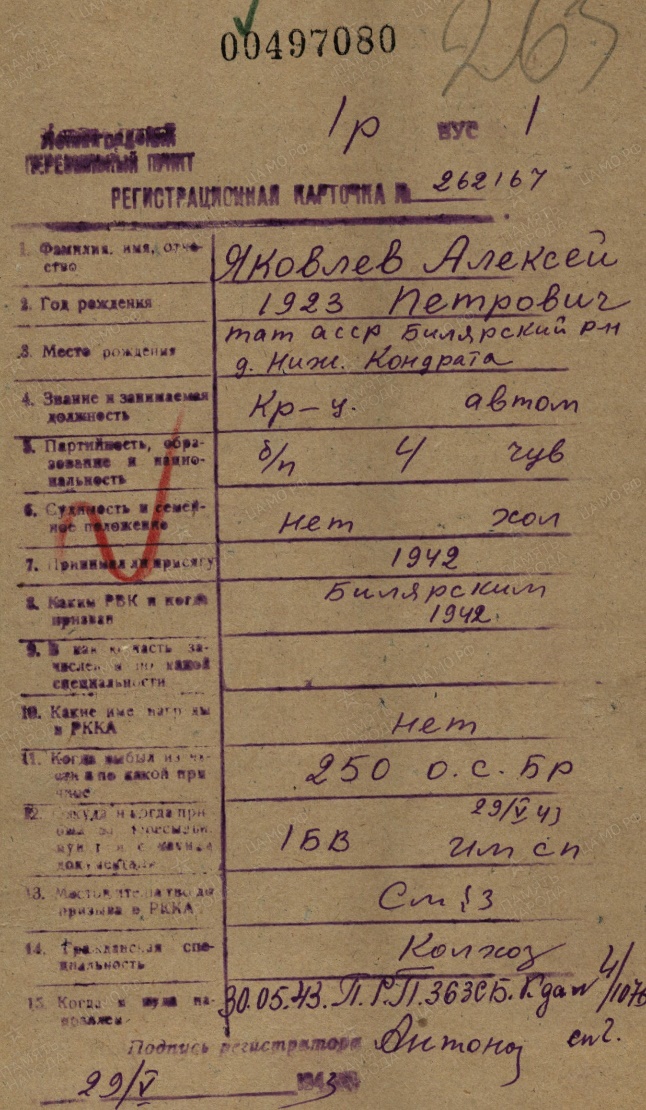 00497080
263
1р ВУС 1
ЛЕНИНГРАДСКИЙ
ПЕРЕСЫЛЬНЫЙ ПУНКТ
РЕГИСТРАЦИОННАЯ КАРТОЧКА № 262167
1. Фамилия, имя, отче-
ство
Яковлев Алексей
2. Год рождения
1923 Петрович
3. Место рождения
тат асср Билярский р-н
д. Ниж. Кондрата
4. Звание и занимаемая
должность
Кр-ц. автом
5. Партийность, обра-
зование и нацио-
нальность
б/п 4 чув
6. Судимость и семей-
ное положение
нет хол
7. Принимал ли присягу
1942
8. Каким РВК и когда
призван
Билярским
1942.
9. В как часть за-
числен и по какой
специальности
10. Какие имел награды
в РККА
нет
11. Когда выбыл из ча-
сти и по какой при
чине
250 о.с. Бр
12. Откуда и когда при
был
29/V 43
1БВ им сп
13. Место жительства до
призыва в РККА
См § 3
14. Гражданская спе-
циальность
Колхоз
15. Когда и куда на-
правлен
30.05.43. П.Р.П. 36 ЗСБ.
Подпись регистратора
29/V 1943